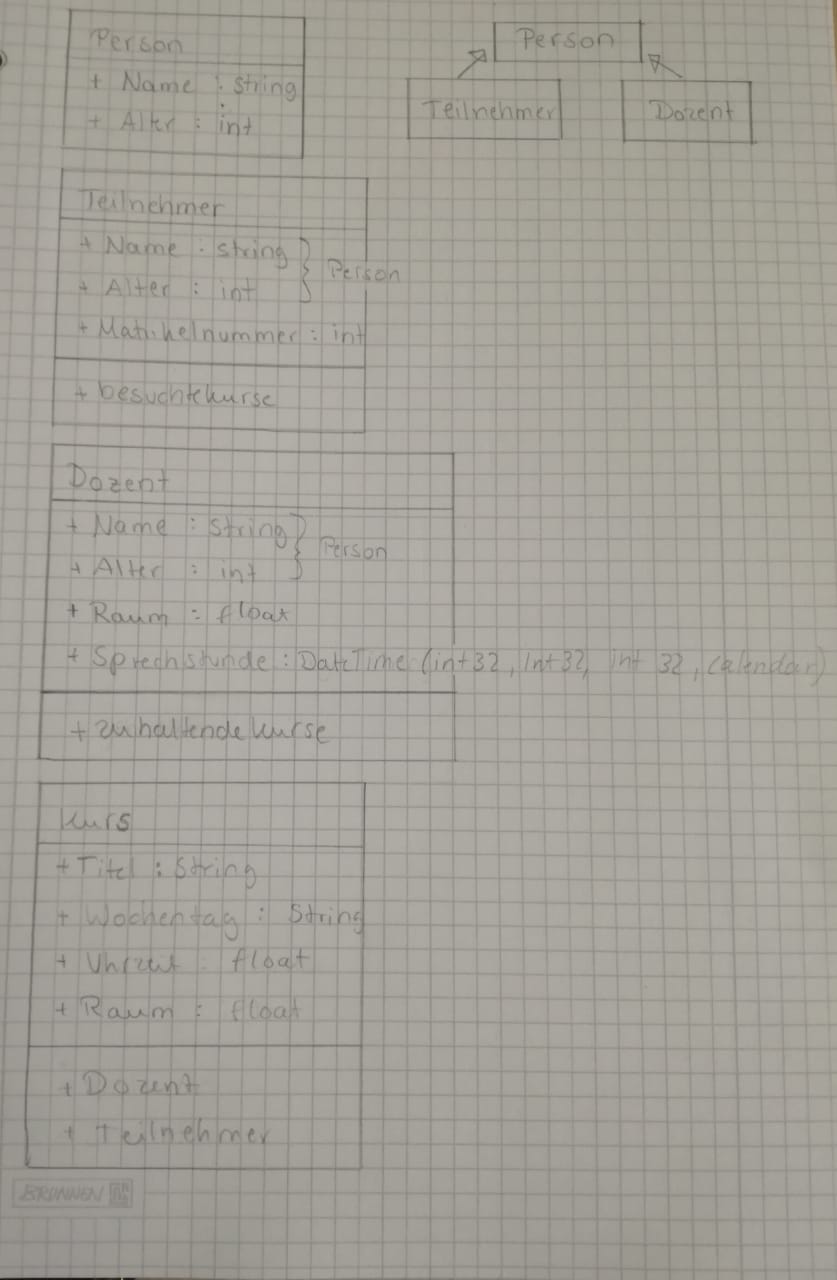 Person
+ Name : string
+ Alter : int
Person
Teilnehmer
Dozent
Teilnehmer
+ Name : string
+ Alter : int
} Person
+ Matrikelnummer : int
+ besuchtekurse
Dozent
+ Name : String
+ Alter : int
} Person
+ Raum : float
+ Sprechstunde : DateTime (int32, int32, int 32, Calendar)
+ zuhaltendekurse
Kurs
+ Titel : String
+ Wochentag : String
+ Uhrzeit : float
+ Raum : float
+ Dozent
+ Teilnehmer
BRUNNEN